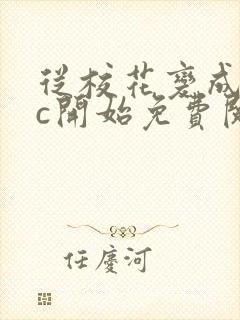 從校花褻成
c開始免費閱
任慶河